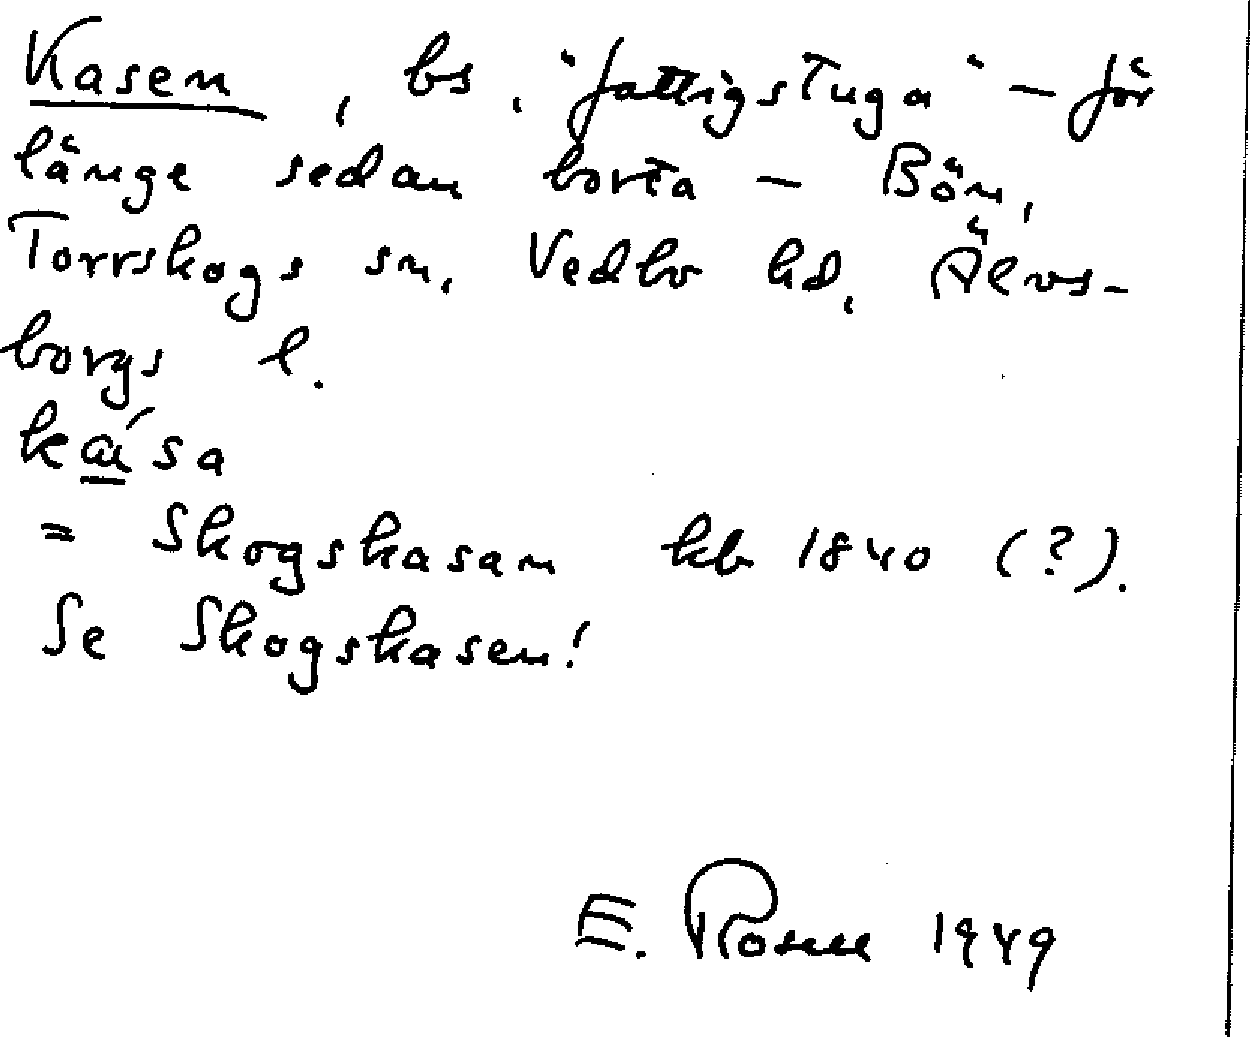 Kasen, bs, "fattigstuga" – för
länge sedan borta – Bön,
Torrskogs sn, Vedbo hd, Älvs-
borgs l.
ka´sa
= Skogskasan kb 1840 (?).
Se Skogskasen!
E. Rosell 1949